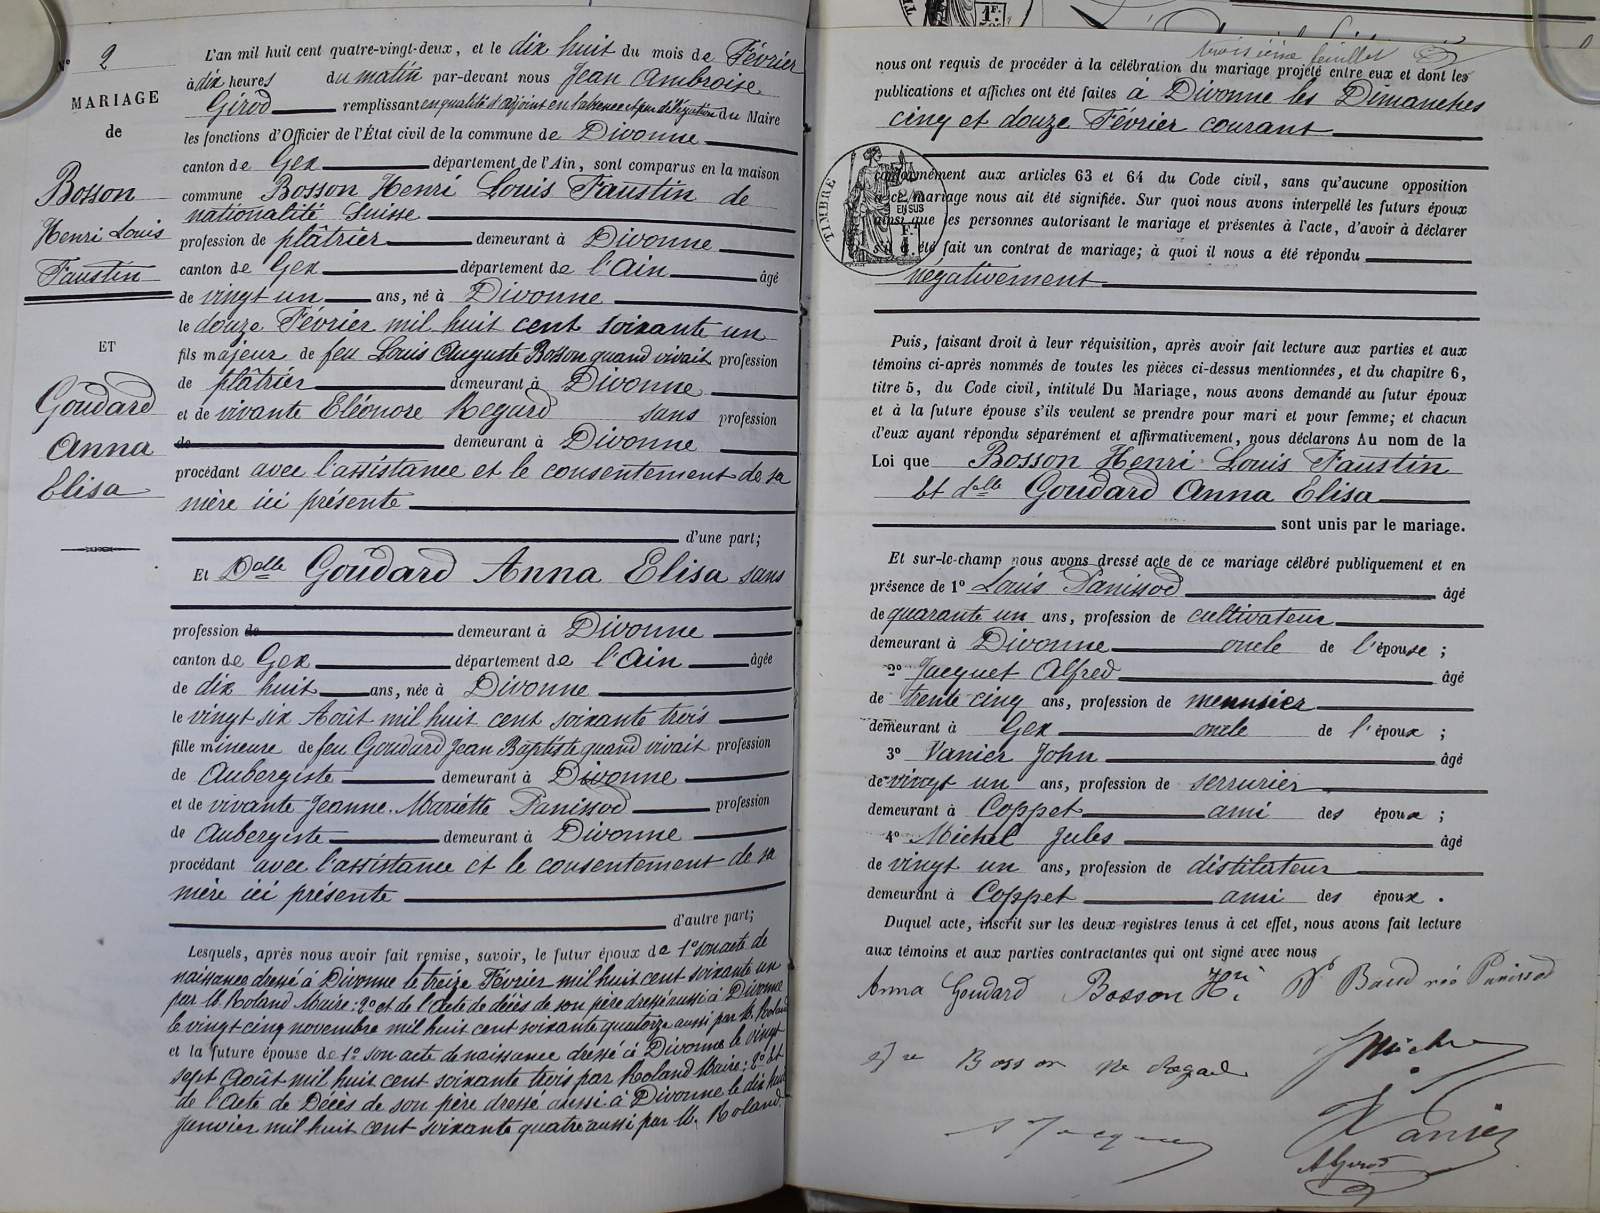 N° 2
MARIAGE
de
Bosson
Henri Louis
Faustin
ET
Goudard
Anna
Elisa
L'an mil huit cent quatre-vingt-deux, et le dix huit du mois de Février
à dix heures du matin par-devant nous Jean Ambroise
Girod remplissant en qualité d'adjoint en l'absence et par délégation du Maire
les fonctions d'Officier de l'État civil de la commune de Divonne
canton de Gex département de l'Ain, sont comparus en la maison
commune Bosson Henri Louis Faustin de
nationalité Suisse
profession de plâtrier demeurant à Divonne
canton de Gex département de l'Ain âgé
de vingt un ans, né à Divonne
le douze Février mil huit cent soixante un
fils majeur de feu Louis Auguste Bosson quand vivait profession
de plâtrier demeurant à Divonne
et de vivante Eléonore Regard sans profession
de demeurant à Divonne
procédant avec l'assistance et le consentement de sa
mère ici présente
d'une part;
Et Delle Goudard Anna Elisa sans
profession de demeurant à Divonne
canton de Gex département de l'Ain âgée
de dix huit ans, née à Divonne
le vingt six Août mil huit cent soixante trois
fille mineure de feu Goudard Jean Baptiste quand vivait profession
de Aubergiste demeurant à Divonne
et de vivante Jeanne Mariette Panissod profession
de Aubergiste demeurant à Divonne
procédant avec l'assistance et le consentement de sa
mère ici présente
d'autre part;
Lesquels, après nous avoir fait remise, savoir, le futur époux de 1° son acte de
naissance dressé à Divonne le treize Février mil huit cent soixante un
par M. Roland Maire; 2° et de l'acte de décès de son père dressé aussi à Divonne
le vingt cinq novembre mil huit cent soixante quatorze aussi par M. Roland
et la future épouse de 1° son acte de naissance dressé à Divonne le vingt
sept Août mil huit cent soixante trois par Roland Maire; 2° et
de l'Acte de Décès de son père dressé aussi à Divonne le dix huit
Janvier mil huit cent soixante quatre aussi par M. Roland.
troisième feuillet
nous ont requis de procéder à la célébration du mariage projeté entre eux et dont les
publications et affiches ont été faites à Divonne les Dimanches
cinq et douze Février courant
conformément aux articles 63 et 64 du Code civil, sans qu'aucune opposition
à ce mariage nous ait été signifiée. Sur quoi nous avons interpellé les futurs époux
ainsi que les personnes autorisant le mariage et présentes à l'acte, d'avoir à déclarer
s'il a été fait un contrat de mariage; à quoi il nous a été répondu
négativement
TIMBRE
2/10
EN SUS
1 F.
Puis, faisant droit à leur réquisition, après avoir fait lecture aux parties et aux
témoins ci-après nommés de toutes les pièces ci-dessus mentionnées, et du chapitre 6,
titre 5, du Code civil, intitulé Du Mariage, nous avons demandé au futur époux
et à la future épouse s'ils veulent se prendre pour mari et pour femme; et chacun
d'eux ayant répondu séparément et affirmativement, nous déclarons Au nom de la
Loi que Bosson Henri Louis Faustin
Et delle Goudard Anna Elisa
sont unis par le mariage.
Et sur-le-champ nous avons dressé acte de ce mariage célébré publiquement et en
présence de 1° Louis Panissod âgé
de quarante un ans, profession de cultivateur
demeurant à Divonne oncle de l'épouse;
2° Jacquet Alfred âgé
de trente cinq ans, profession de menusier
demeurant à Gex oncle de l'époux;
3° Vanier John âgé
de vingt un ans, profession de serrurier
demeurant à Coppet ami des époux;
4° Michel Jules âgé
de vingt un ans, profession de distilateur
demeurant à Coppet ami des époux.
Duquel acte, inscrit sur les deux registres tenus à cet effet, nous avons fait lecture
aux témoins et aux parties contractantes qui ont signé avec nous
Anna Goudard Bosson Hri Baud née Panissod
Bosson née Regard
J Vanier
A Girod